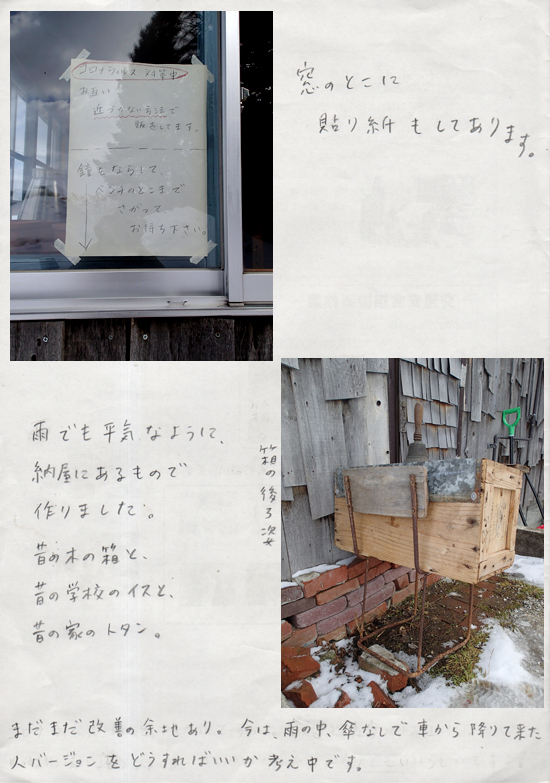 コロナウィルス 対策中
お互い
近づかない方法で
販売してます。
鐘をならして、
ベンチのとこまで
さがって
お待ち下さい。
窓のとこに
貼り紙もしてあります。
雨でも平気なように、
納屋にあるもので
作りました。
昔の木の箱と、
昔の学校のイスと、
昔の家のトタン。
箱の後ろ姿
まだまだ改善の余地あり。今は、雨の中、傘なしで車から降りて来た
人バージョンをどうすればいいか考え中です。